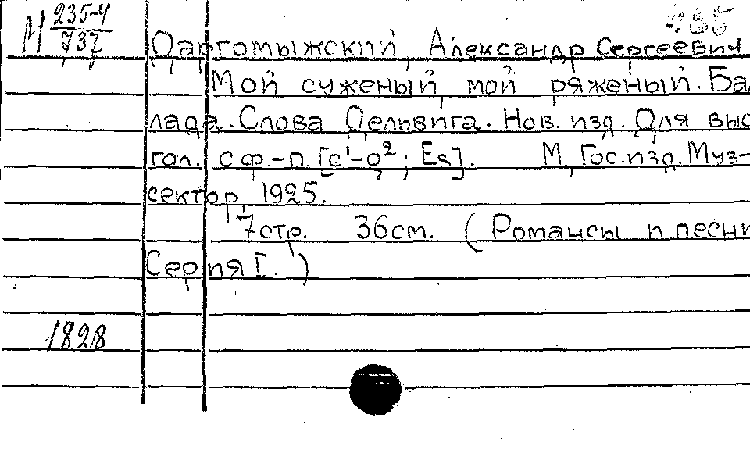 М 235-4/737
Даргомыжский, Александр Сергеевич
Мой суженый, мой ряженый. Бал
лада. Слова Дельвига. Нов. изд. Для выс
гол. с ф.-п. [ ; Es]. М, Гос. изд. Муз-
сектор, 1925.
7 стр. 36 см. (Романсы и песни
Серия I.)
1828